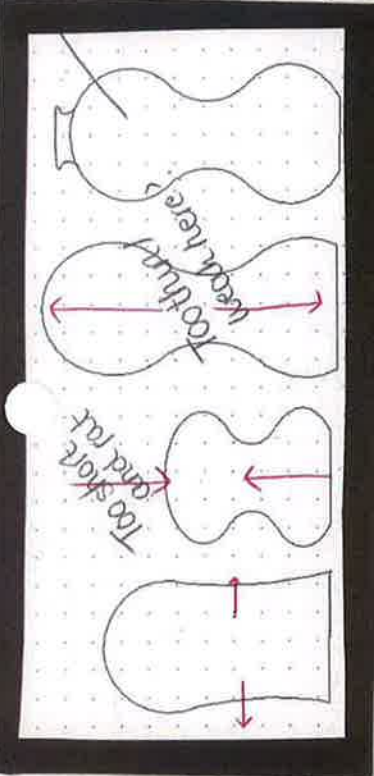 Too thin/
weak here?
Too short
and fat